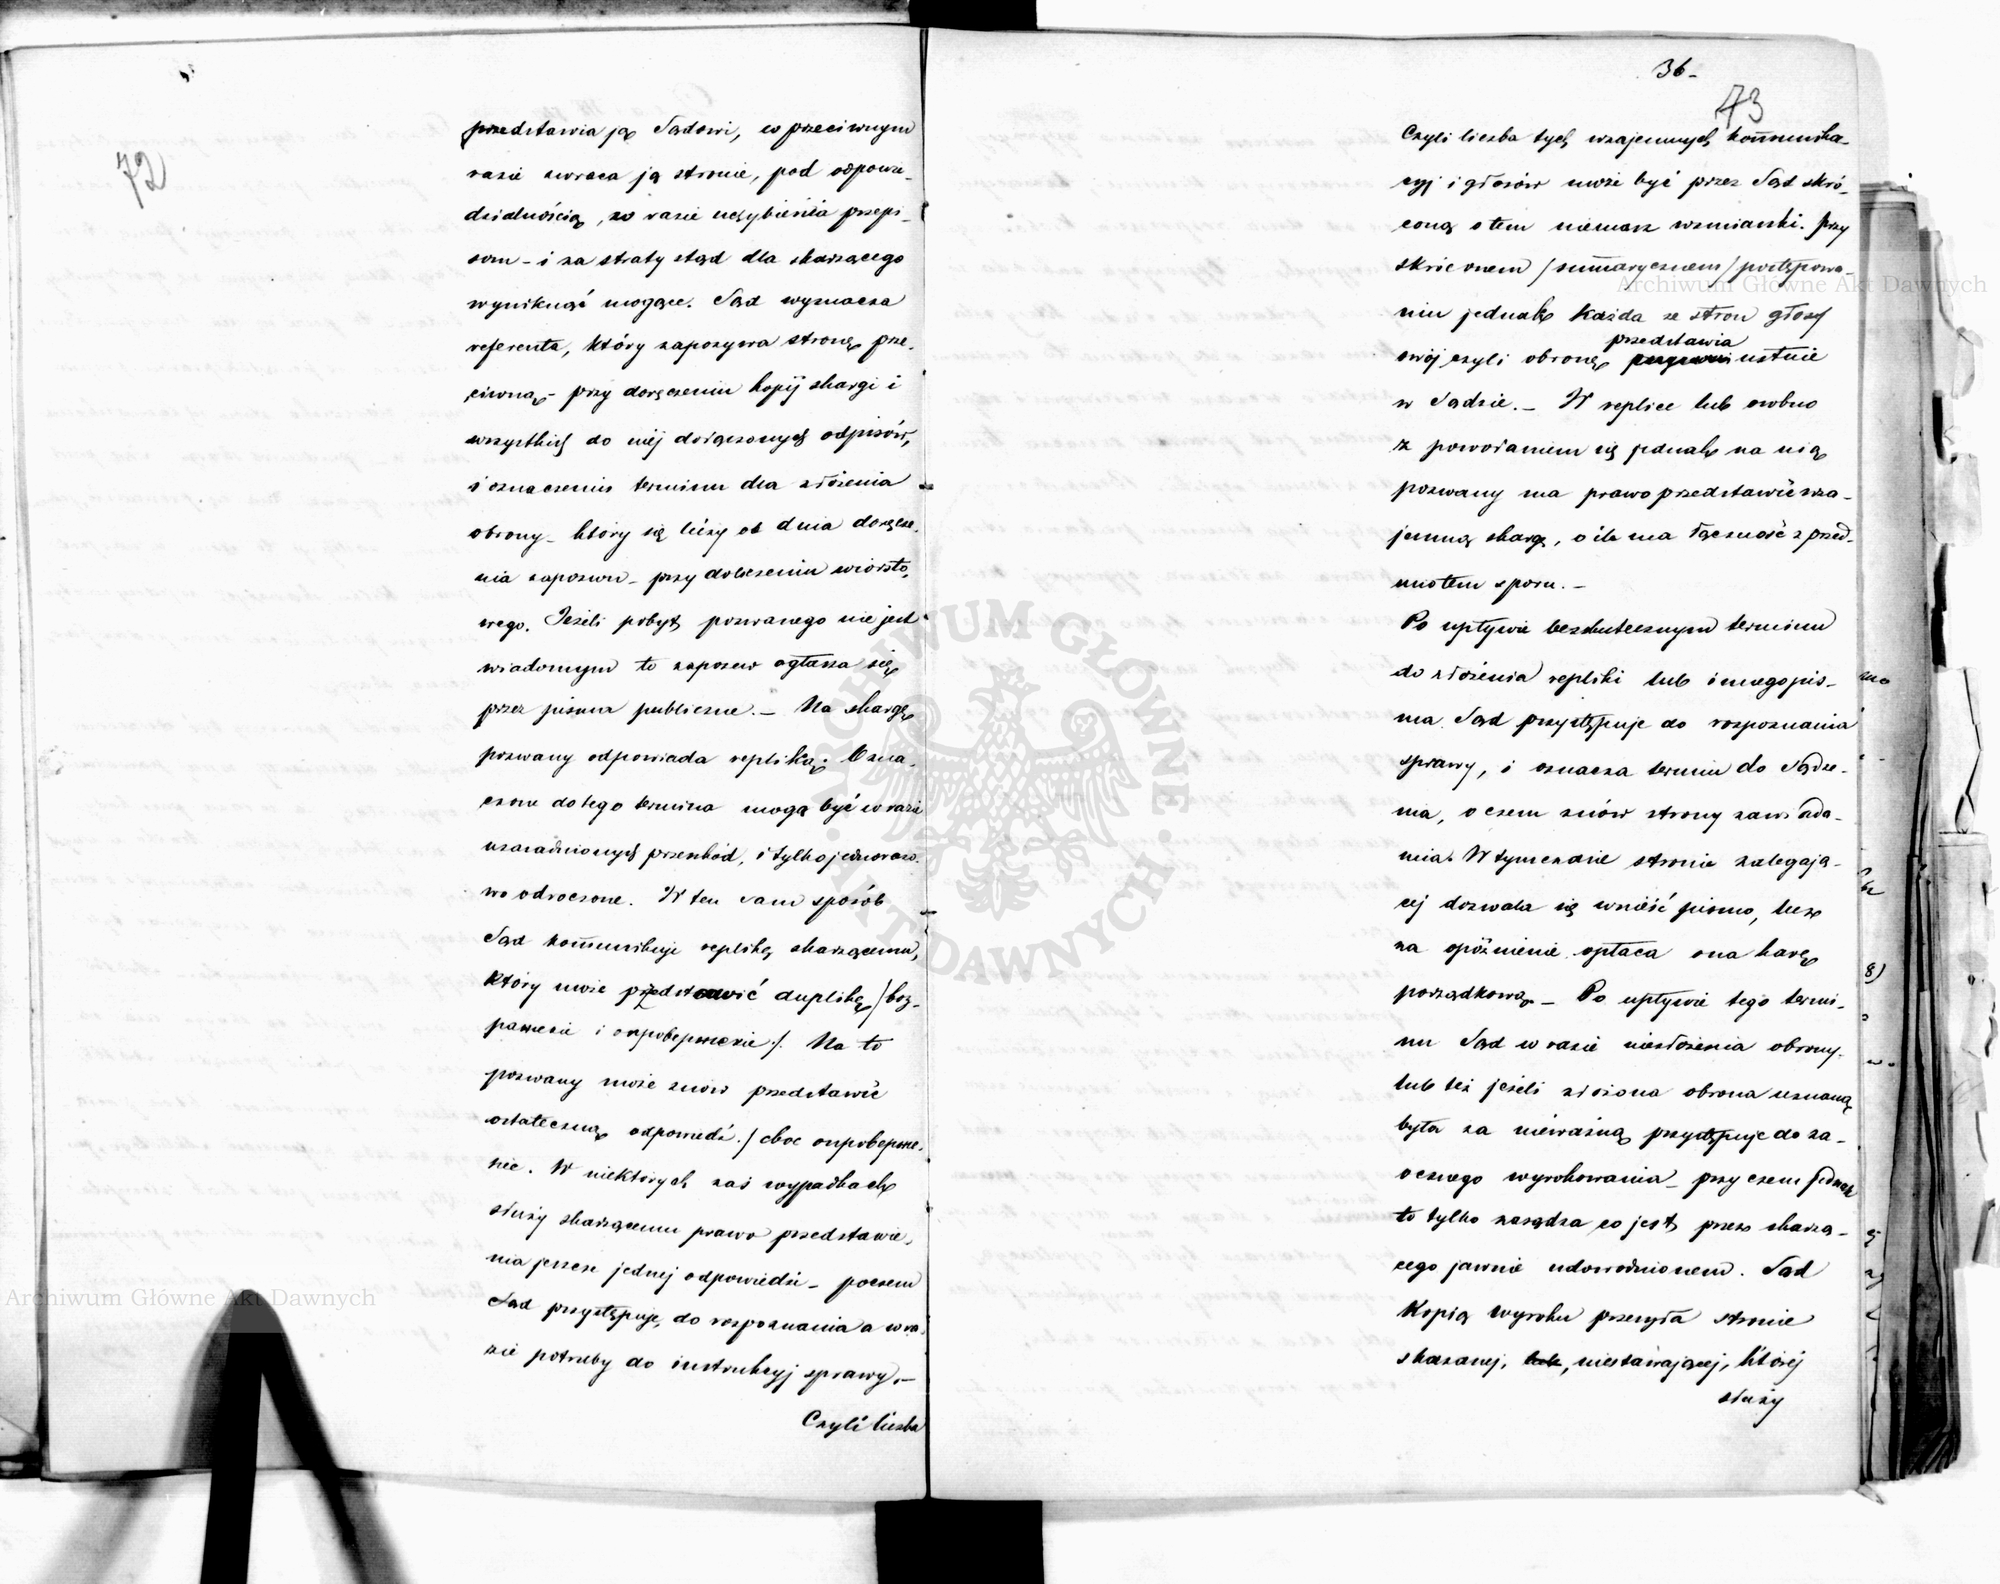 72
przedstawia ją Sądowi, w przeciwnym
razie zwraca ją stronie, pod odpowie-
dzialnością, w razie uchybienia przepi-
som - i za straty stąd dla skarżącego
wyniknąć mogące. Sąd wyznacza
referenta, który zapozywa stronę prze-
ciwną - przy doręczeniu kopij skargi i
wszystkich do niej dołączonych odpisów,
i oznaczeniu terminu dla złożenia
obrony - który się liczy od dnia doręcze-
nia zapozwu - przy doliczeniu wiorsto-
wego. Jeżeli pobyt pozwanego nie jest
wiadomym to zapozew ogłasza się
przez pisma publiczne. - Na skargę
pozwany odpowiada repliką. Ozna-
czone do tego termina mogą być w razie
uzasadnionych przeszkód, i tylko jednorazo-
wo odroczone. W ten sam sposób
Sąd kom̄unikuje replikę skarżącemu,
który może przedstawić duplikę /воз-
ражение и опровержение/. Na to
pozwany może znów przedstawić
ostateczną odpowiedź. / свое опроверже-
ние. W niektórych zaś wypadkach
służy skarżącemu prawo przedstawie-
nia jeszcze jednej odpowiedzi - poczem
Sąd przystępuje, do rozpoznania a w ra-
zie potrzeby do instrukcyj sprawy. -
Czyli liczba
36-
73
Czyli liczba tych wzajemnych kom̄unika-
cyj i głosów może być przez Sąd skró-
coną o tem niemasz wzmianki. Przy
skróconem /sum̄arycznem/ postępowa-
niu jednak każda ze stron głos
przedstawia
swój czyli obronę ustnie
w Sądzie. - W replice lub osobno
z powołaniem się jednak na nią
pozwany ma prawo przedstawić wza-
jemną skargę, o ile ma łączność z przed-
miotem sporu. -
Po upływie bezskutecznym terminu
do złożenia repliki lub innego pis-
ma Sąd przystępuje do rozpoznania
sprawy, i oznacza termin do Sądze-
nia, o czem znów strony zawiada-
mia. W tymczasie stronie zalegają-
cej dozwala się wnieść pismo, lecz
za opóźnienie opłaca ona karę
porządkową. - Po upływie tego termi-
nu Sąd w razie niezłożenia obrony.
lub też jeżeli złożona obrona uznaną
była za nieważną przystępuje do za-
ocznego wyrokowania - przy czem jednak
to tylko zasądza co jest przez skarżą-
cego jawnie udowodnionem. Sąd
Kopią wyroku przesyła stronie
skazanej, lub, niestawającej, której
służy
Archiwum Główne Akt Dawnych
Archiwum Główne Akt Dawnych
ARCHIWUM GŁÓWNE
AKT DAWNYCH